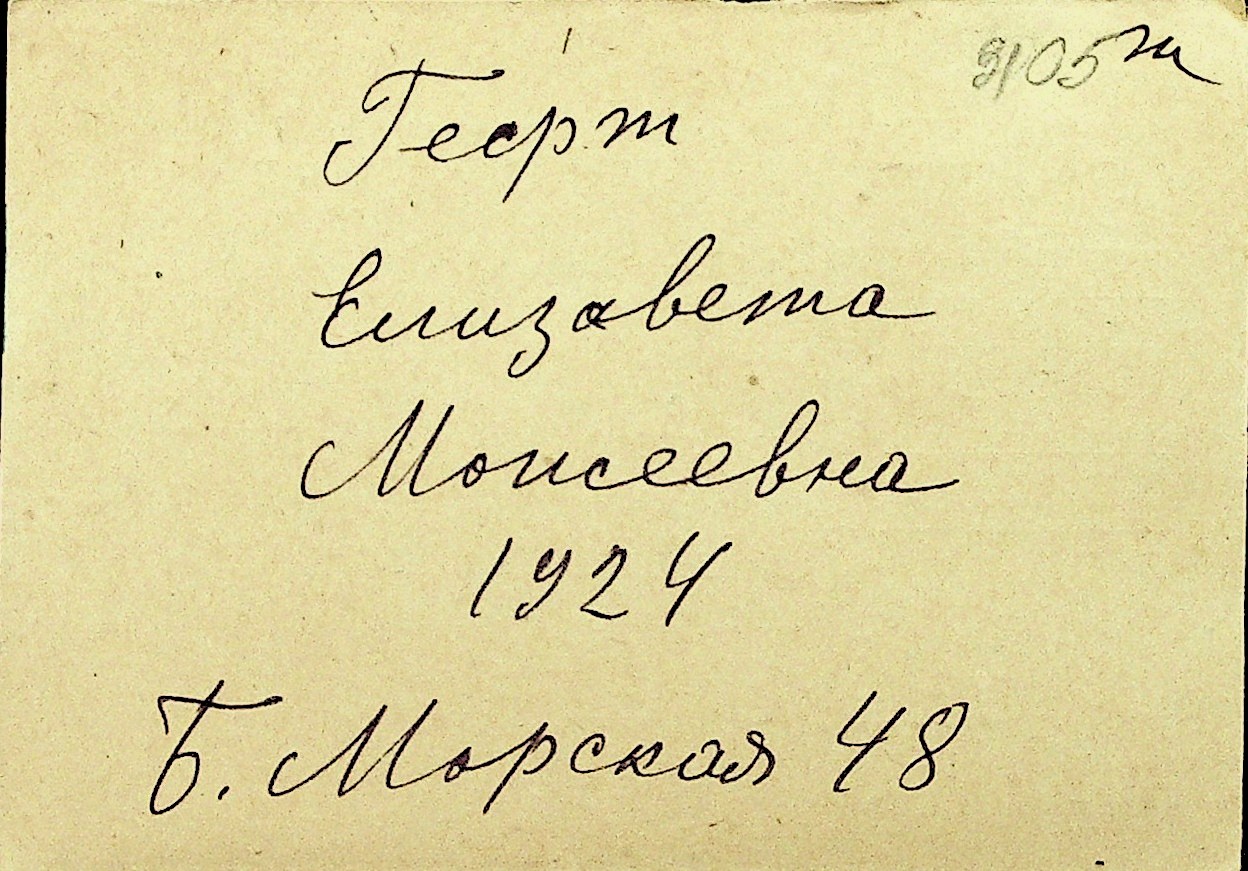 9105 т
Геерт
Елизавета
Моисеевна
1924
Б. Морская 48